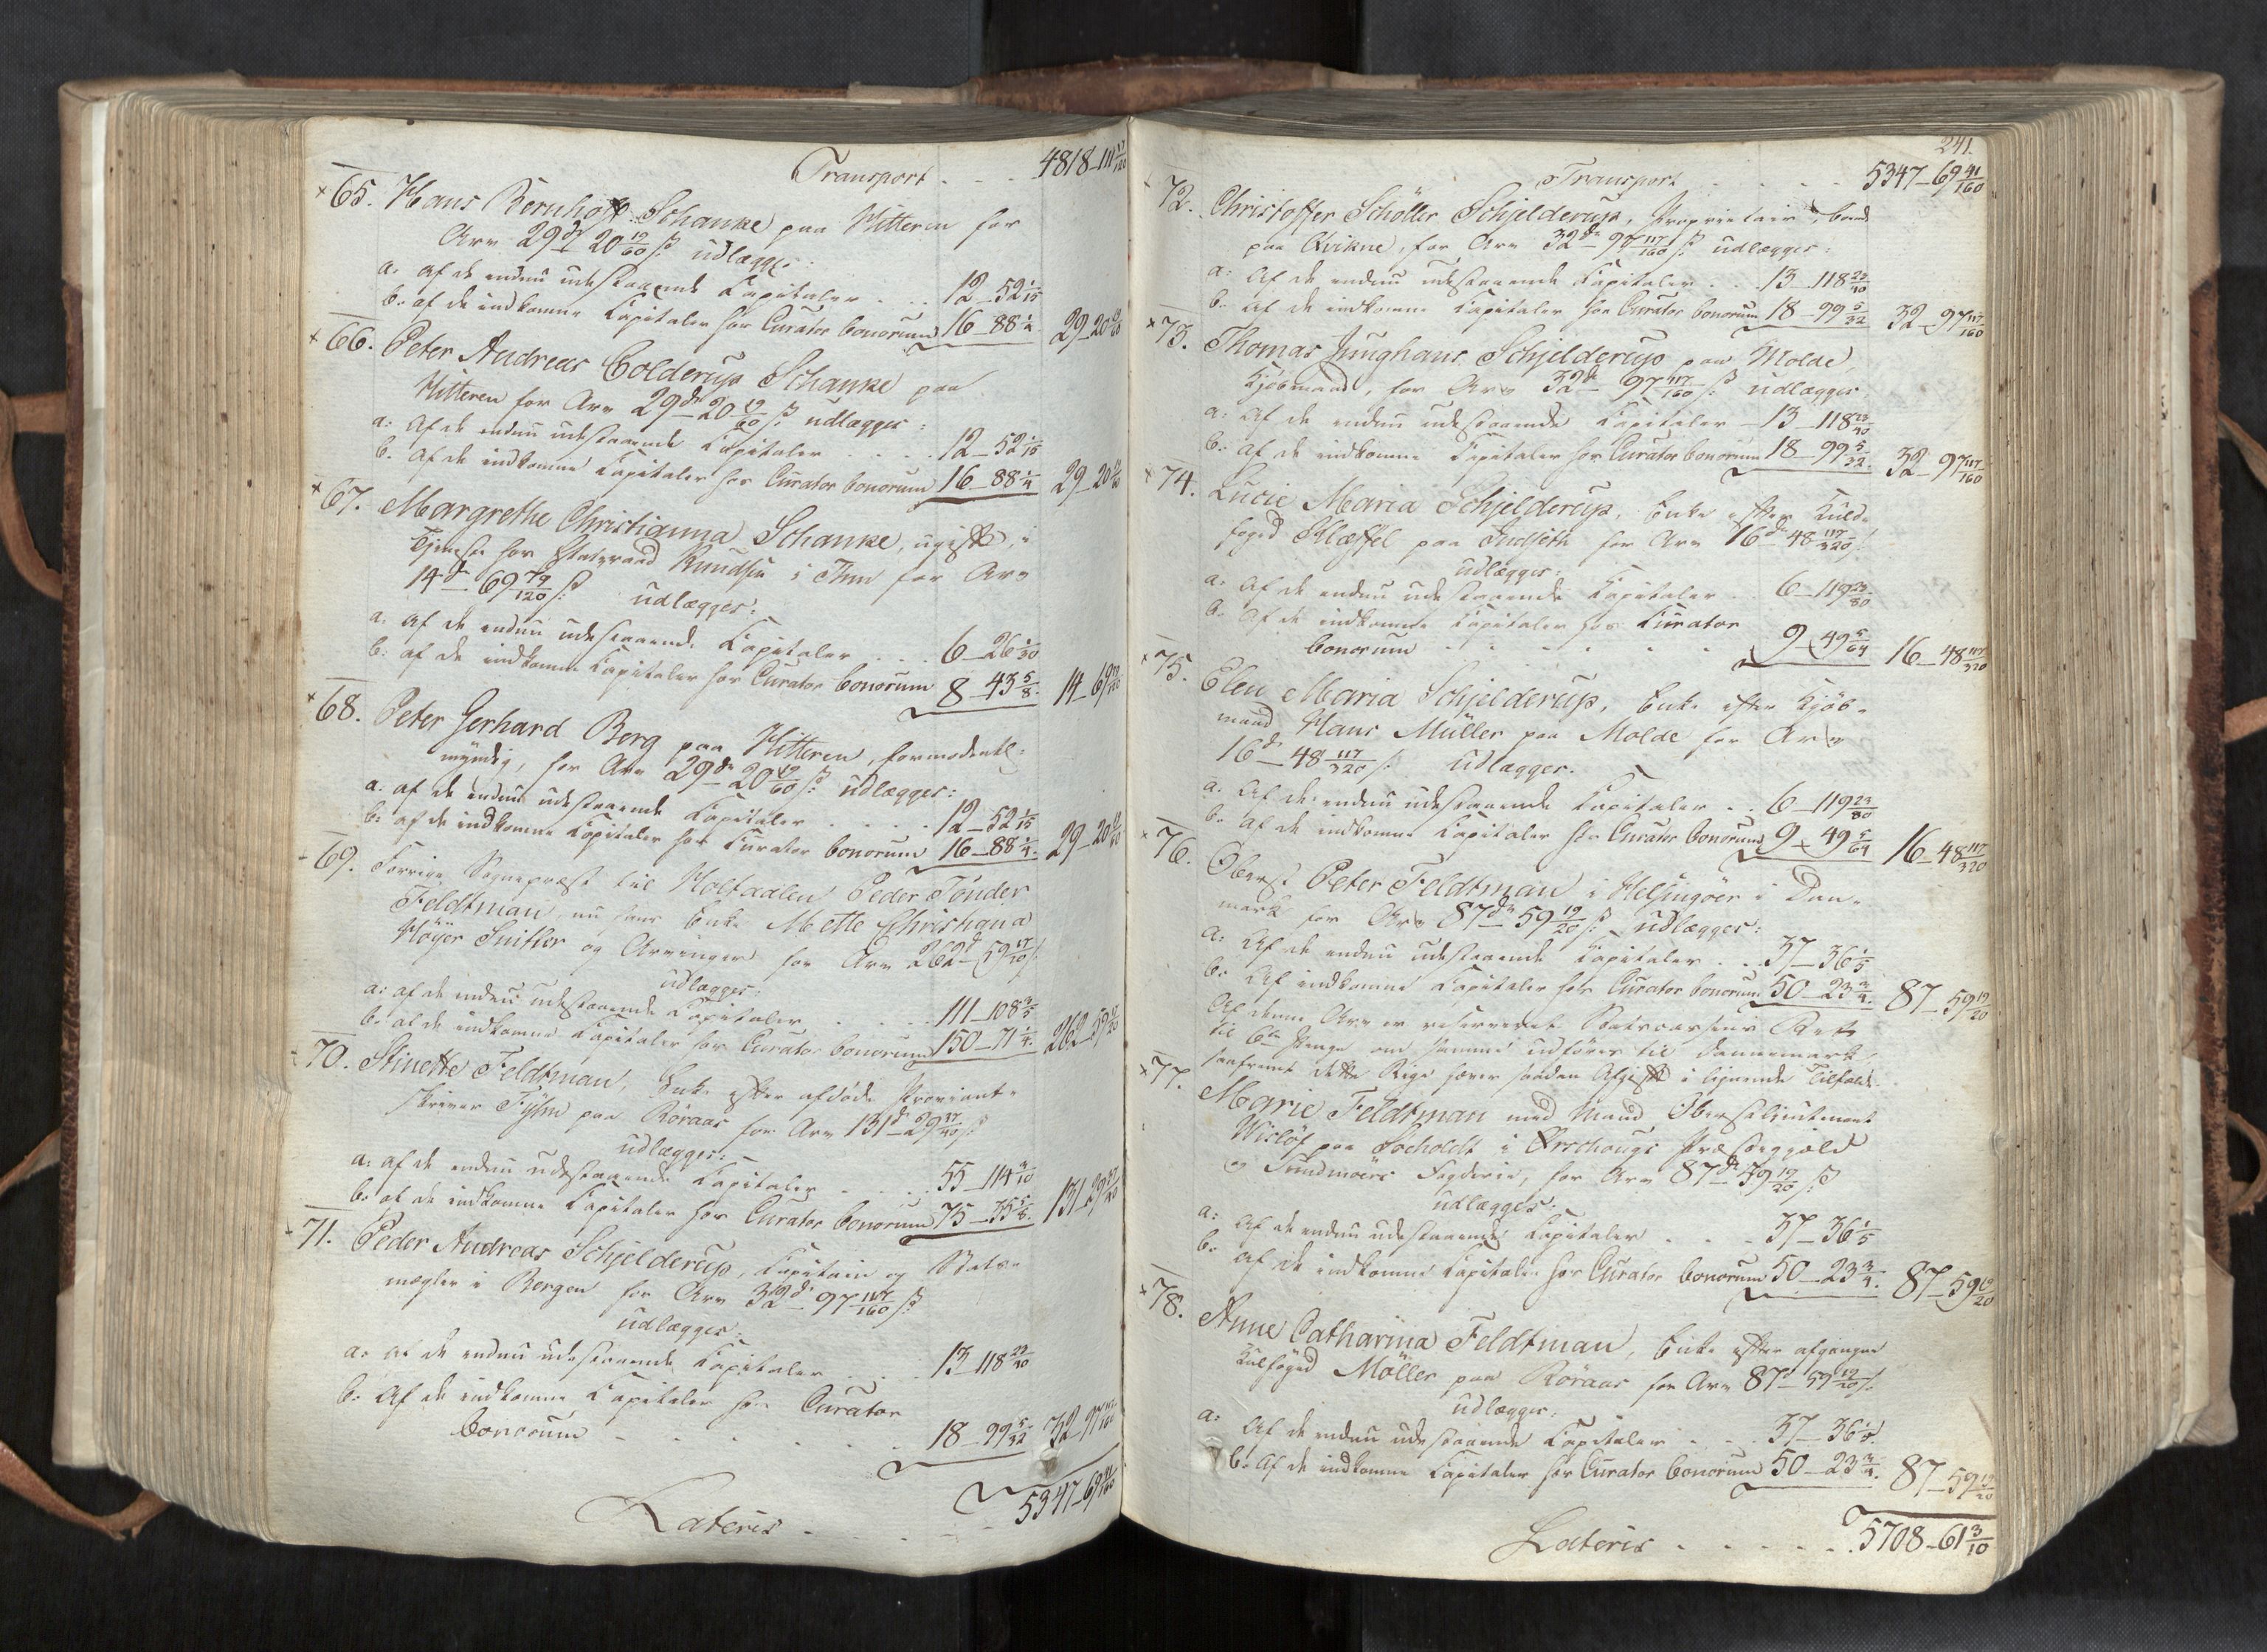 Transport . . . 4818 - 111 17/120
65. Hans Bernhoft Schanke paa Hitteren for
Arv 29 d 20 19/60 ß udlægges:
a. af de endnu udestaaende Capitaler . . . 12 - 52 1/15
b. af de indkomne Capitaler hos Curator bonorum 16 - 88 1/4. 29 - 20 19/60
66. Peter Andreas Colderup Schanke paa
Hitteren for Arv 29 dr 20 19/60 ß udlægges:
a. Af de endnu udestaaende Capitaler . . . . 12 - 52 1/15
b. Af de indkomne Capitaler hos Curator bonorum 16 - 88 1/4 29 - 20 19/60
67. Margrethe Christianna Schanke, ugift, i
Tjeneste hos Statsraad Knudsen i Thm for Arv
14 d 69 79/120 ß: udlægges:
a. af de endnu udestaaende Capitaler . . . 6 - 26 1/30
b. af de indkomne Capitaler hos Curator bonorum 8 - 43 5/8. 14 - 69 79/120
68. Peter Gerhard Berg paa Hitteren, formodentl:
myndig, for Arv 29 dr 20 19/60 ß: udlægges:
a. af de endnu udestaaende Capitaler . . . . 12 - 52 1/15
b. af de indkomne Capitaler hos Curator bonorum 16 - 88 1/4. 29 - 20 19/60
69. Forrige Sognepræst til Holtaalen Peder Tönder
Feldtman, nu hans Enke Mette Christiana
Höyer Snitler og Arvinger for Arv 262 d 59 17/20 ß
udlægges:
a: af de endnu udestaaende Capitaler . . . . 111 - 108 3/5
b. af de indkomne Capitaler hos Curator bonorum 150 - 71 1/4. 262 - 59 17/20
70. Stinette Feldtman, Enke efter afdøde Proviant-
skriver Fyhn paa Röraas for Arv 131 d 29 37/40 ß
udlægges:
a. af de endnu udestaaende Capitaler . . . . 55 - 114 3/10
b. af de indkomne Capitaler hos Curator bonorum 75 - 35 5/8. 131 - 29 37/40
71. Peder Andreas Schjelderup, Capitain og
mægler i Bergen for Arv 32 d 97 117/160 ß
udlægges:
a. af de endnu udestaaende Capitaler . . . . 13 - 118 23/40
b. Af de indkomne Capitaler hos Curator
bonorum - - - - - - 18 - 99 5/32 32 - 97 117/160
Lateris . . . . . 5347 - 69 41/160
241.
Transport . . . . . 5347 - 69 41/160
72. Christoffer Schöller Schjelderup, Proprietair,
paa Qvikne, for Arv 32 dr 97 117/160 ß: udlægges:
a: Af de endnu udestaaende Capitaler . . . 13 - 118 23/40
b. Af de indkomne Capitaler hos Curator bonorum 18 - 99 5/32 32 - 97 117/160
73. Thomas Junghans Schjelderup paa Molde,
Kjöbmand, for Arv 32 dr 97 117/160 ß: udlægges
a. Af de endnu udestaaende Capitaler - 13 - 118 23/40
b. af de indkomne Capitaler hos Curator bonorum 18 - 99 5/32. 32 - 97 117/160
74. Lucie Maria Schjelderup, Enke efter Kuld-
foged Klæffel paa Indseth for Arv 16 d 48 117/320 ß:
udlægges:
a. Af de endnu udestaaende Capitaler . . 6 - 119 23/80
b. Af de indkomne Capitaler hos Curator
bonorum - - - - - - 9 - 49 5/64 16 - 48 117/320
75. Elen Maria Schjelderup, Enke efter Kjöb-
mand Hans Müller paa Molde for Arv
16 d 48 117/320 ß udlægges.
a. Af de endnu udestaaende Capitaler . . 6 - 119 23/80
b. af de indkomne Capitaler hos Curator bonorum 9 - 49 5/64 16 - 48 117/320
76. Oberst Peter Feldtman i Helsingöer i Dan-
mark for Arv 87 dr 59 19/20 ß: udlægges:
a. Af de endnu udestaaende Capitaler . . . 37 - 36 1/5
b. Af indkomne Capitaler hos Curator bonorum 50 - 23 3/4. 87 - 59 19/20
Af denne Arv er reserveret Statscassens Ret
til 6te Penge om samme udföres til Dannemark,
saafremt dette Rige hæver saadan Afgift i lignende Tilfælde.
77. Marie Feldtman med Mand Oberstlieutenant
Wislöf paa Søeholdt i Örschougs Præstegjæld
og Sundmoers Fogderie, for Arv 87 dr 59 19/20 ß
udlægges:
a: Af de endnu udestaaende Capitaler . . . 37 - 36 1/5
b. Af de indkomne Capitaler hos Curator bonorum 50 - 23 3/4. 87 - 59 19/20
78. Anne Catharina Feldtman, Enke efter afgangne
Kulfoged Möller paa Röraas for Arv 87 d 59 19/20 ß
udlægges:
a: Af de endnu udestaaende Capitaler . . . 37 - 36 1/5.
b. Af de indkomne Capitaler hos Curator bonorum 50 - 23 3/4. 87 - 59 19/20
Lateris . . . . . . 5708 - 61 3/10